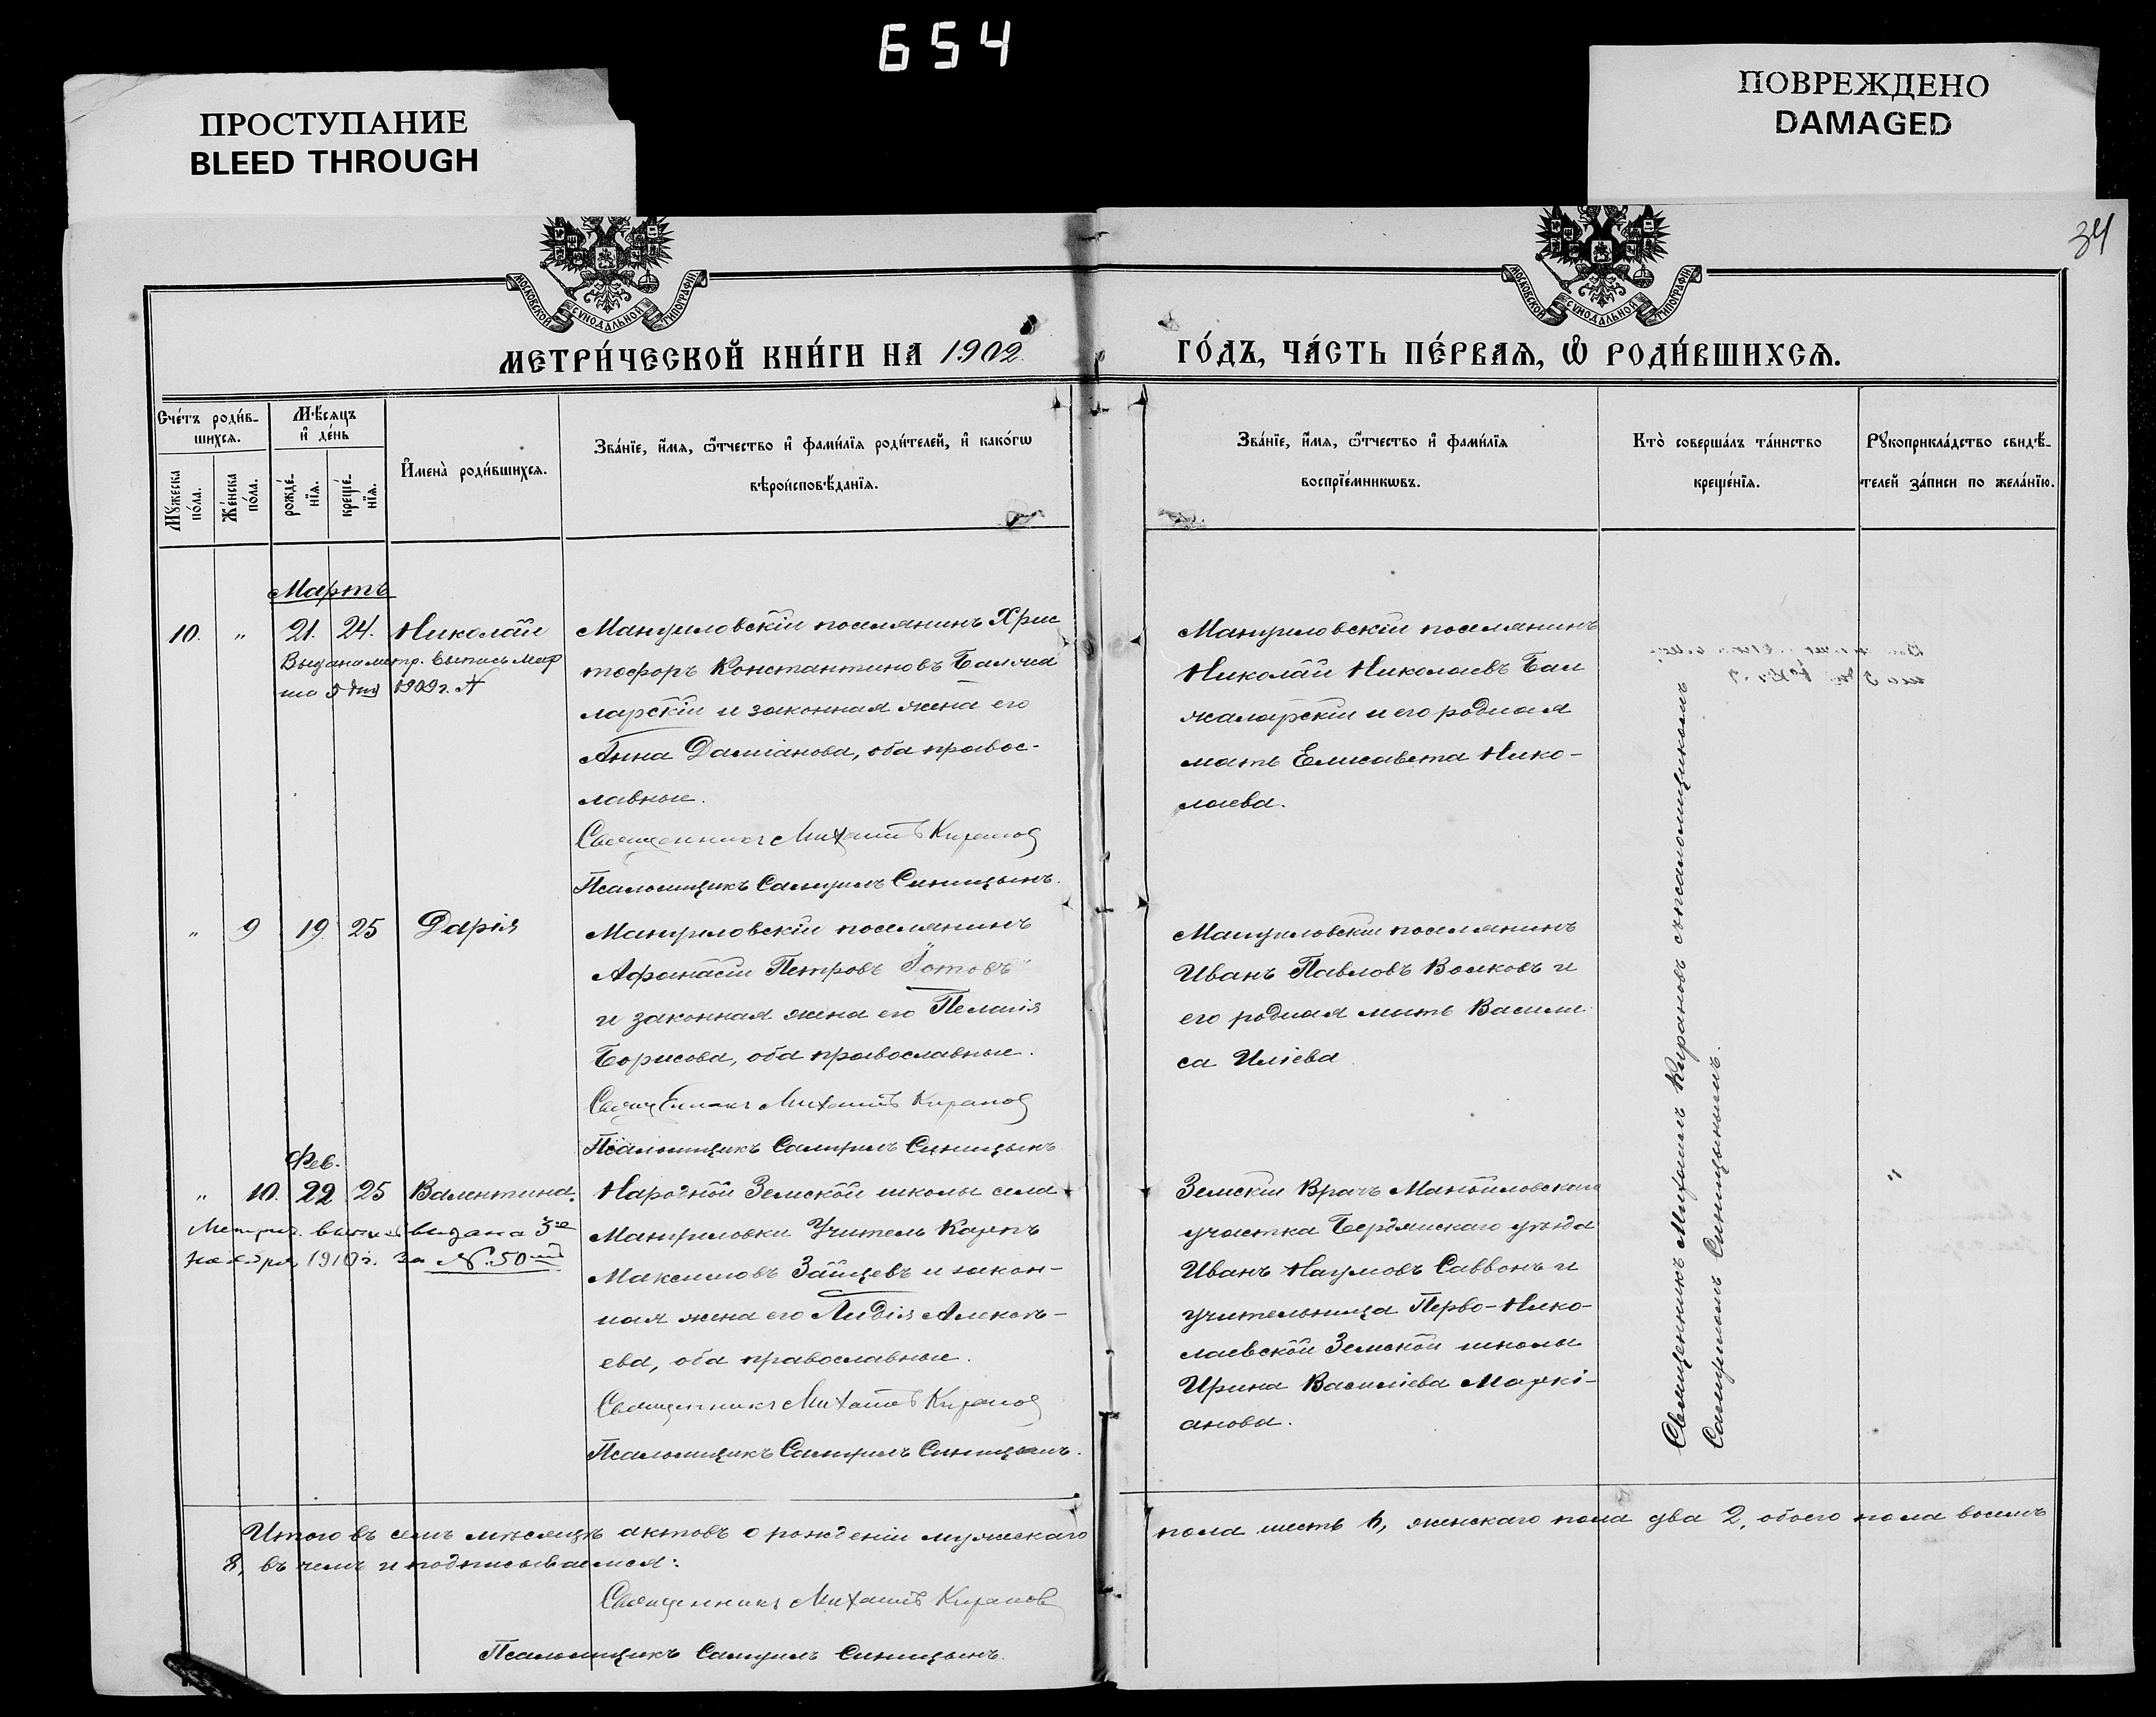 654
ПРОСТУПАНИЕ
BLEED THROUGH
ПОВРЕЖДЕНО
DAMAGED
34
МОСКОВСКОЙ СѴНОДАЛЬНОЙ ТИПОГРАФІИ
МОСКОВСКОЙ СѴНОДАЛЬНОЙ ТИПОГРАФІИ
МЕТРИ́ЧЕСКОЙ КНИ́ГИ НА 1902
ГО́ДЪ, ЧА́СТЬ ПЕ́РВАѦ, Ѽ РОДИ́ВШИХСѦ.
Сче́тъ роди́в-
шихсѧ.
Мѣ́сѧцъ
и҆ де́нь
Мꙋ́жеска
по́ла.
Же́нска
по́ла.
рожде́-
нїѧ.
креще́-
нїѧ.
И҆мена̀ роди́вшихсѧ.
Зва́нїе, и҆́мѧ, ѻ҆́тчество и҆ фами́лїѧ роди́телей, и҆ како́гѡ
вѣроисповѣ́данїѧ.
Зва́нїе, и҆́мѧ, ѻ҆́тчество и҆ фами́лїѧ
воспрїе́мникѡвъ.
Кто̀ соверша́лъ та́инство
креще́нїѧ.
Рꙋкоприкла́дство свидѣ́-
телей за́писи по жела́нїю.
Мартъ
10. " 21. 24. Николай
Выдана метр. выпись мар
та 5 дня 1909 г.
Мануиловскій поселянинъ Хрис
тофоръ Константиновъ
ларскій и законная жена его
Анна Даміанова, оба правос-
лавные.
Священникъ Михаилъ Киранов
Псаломщикъ Самуилъ Синицынъ.
Мануиловскій поселянинъ
Николай Николаевъ Бал
жаларскій и его родная
мать Елисавета Нико-
лаева.
" 9 19 25 Дарія
Мануиловскій поселянинъ
Афанасій Петровъ Готовъ
и законная жена его Пелагія
Борисова, оба православные.
Священникъ Михаилъ Киранов
Псаломщикъ Самуилъ Синицынъ
Мануиловскій поселянинъ
Иванъ Павловъ Волковъ и
его родная мать Васили
са Иліева
Фев.
" 10. 22 25 Валентина.
Метрич. выпись выдана 3го
ноября 1910 г. за № 50
Народной Земской школы села
Мануиловки Учитель Карпъ
Максимовъ Зайцевъ и закон-
ная жена его Лидія Алексѣ-
ева, оба православные.
Священникъ Михаилъ Киранов
Псаломщикъ Самуилъ Синицынъ.
Земскій Врачъ Манойловскаго
участка Бердянскаго уѣзда
Иванъ Наумовъ Саввонъ и
учительница Перво-Нико-
лаевской Земской школы
Ирина Василіева Маркі-
анова.
"
Священникъ Михаилъ Кирановъ съ псаломщикомъ
Самуиломъ Синицынымъ.
Итого въ семъ мѣсяцѣ актовъ о рожденіи мужескаго
пола шесть 6, женскаго пола два 2, обоего пола восемь
8, въ чемъ и подписываемся:
Священникъ Михаилъ Киранов
Псаломщикъ Самуилъ Синицынъ.